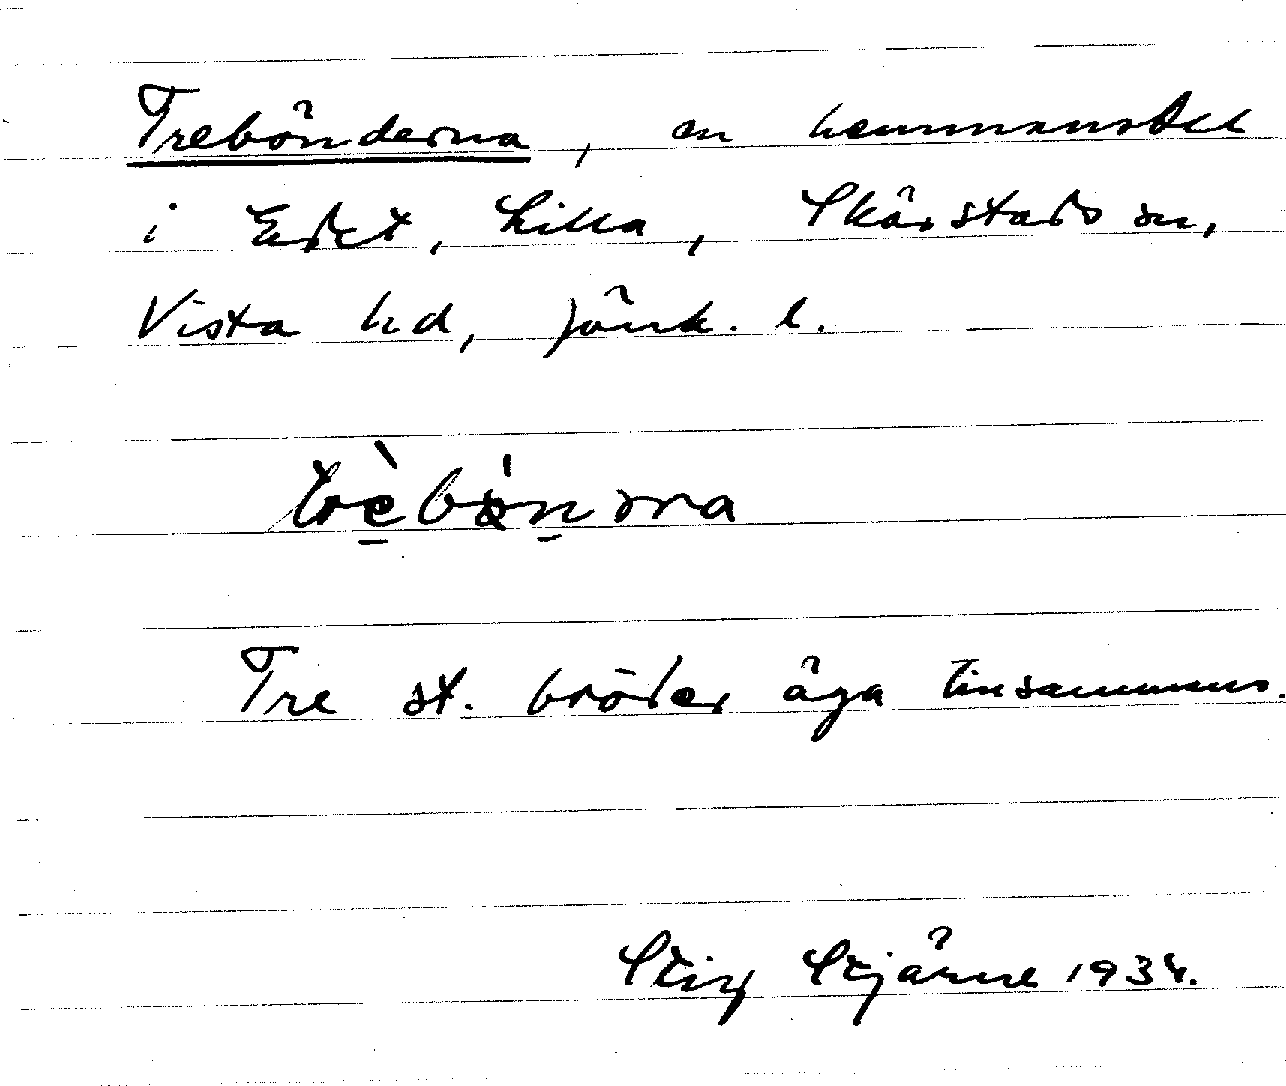 Trebönderna, en hemmansdel
i Edet, Lilla, Skärstads sn,
Vista hd, Jönk. l.
trèbönԁrna
Tre st. bröder äga tillsammans.
Stig Stjärne 1934.